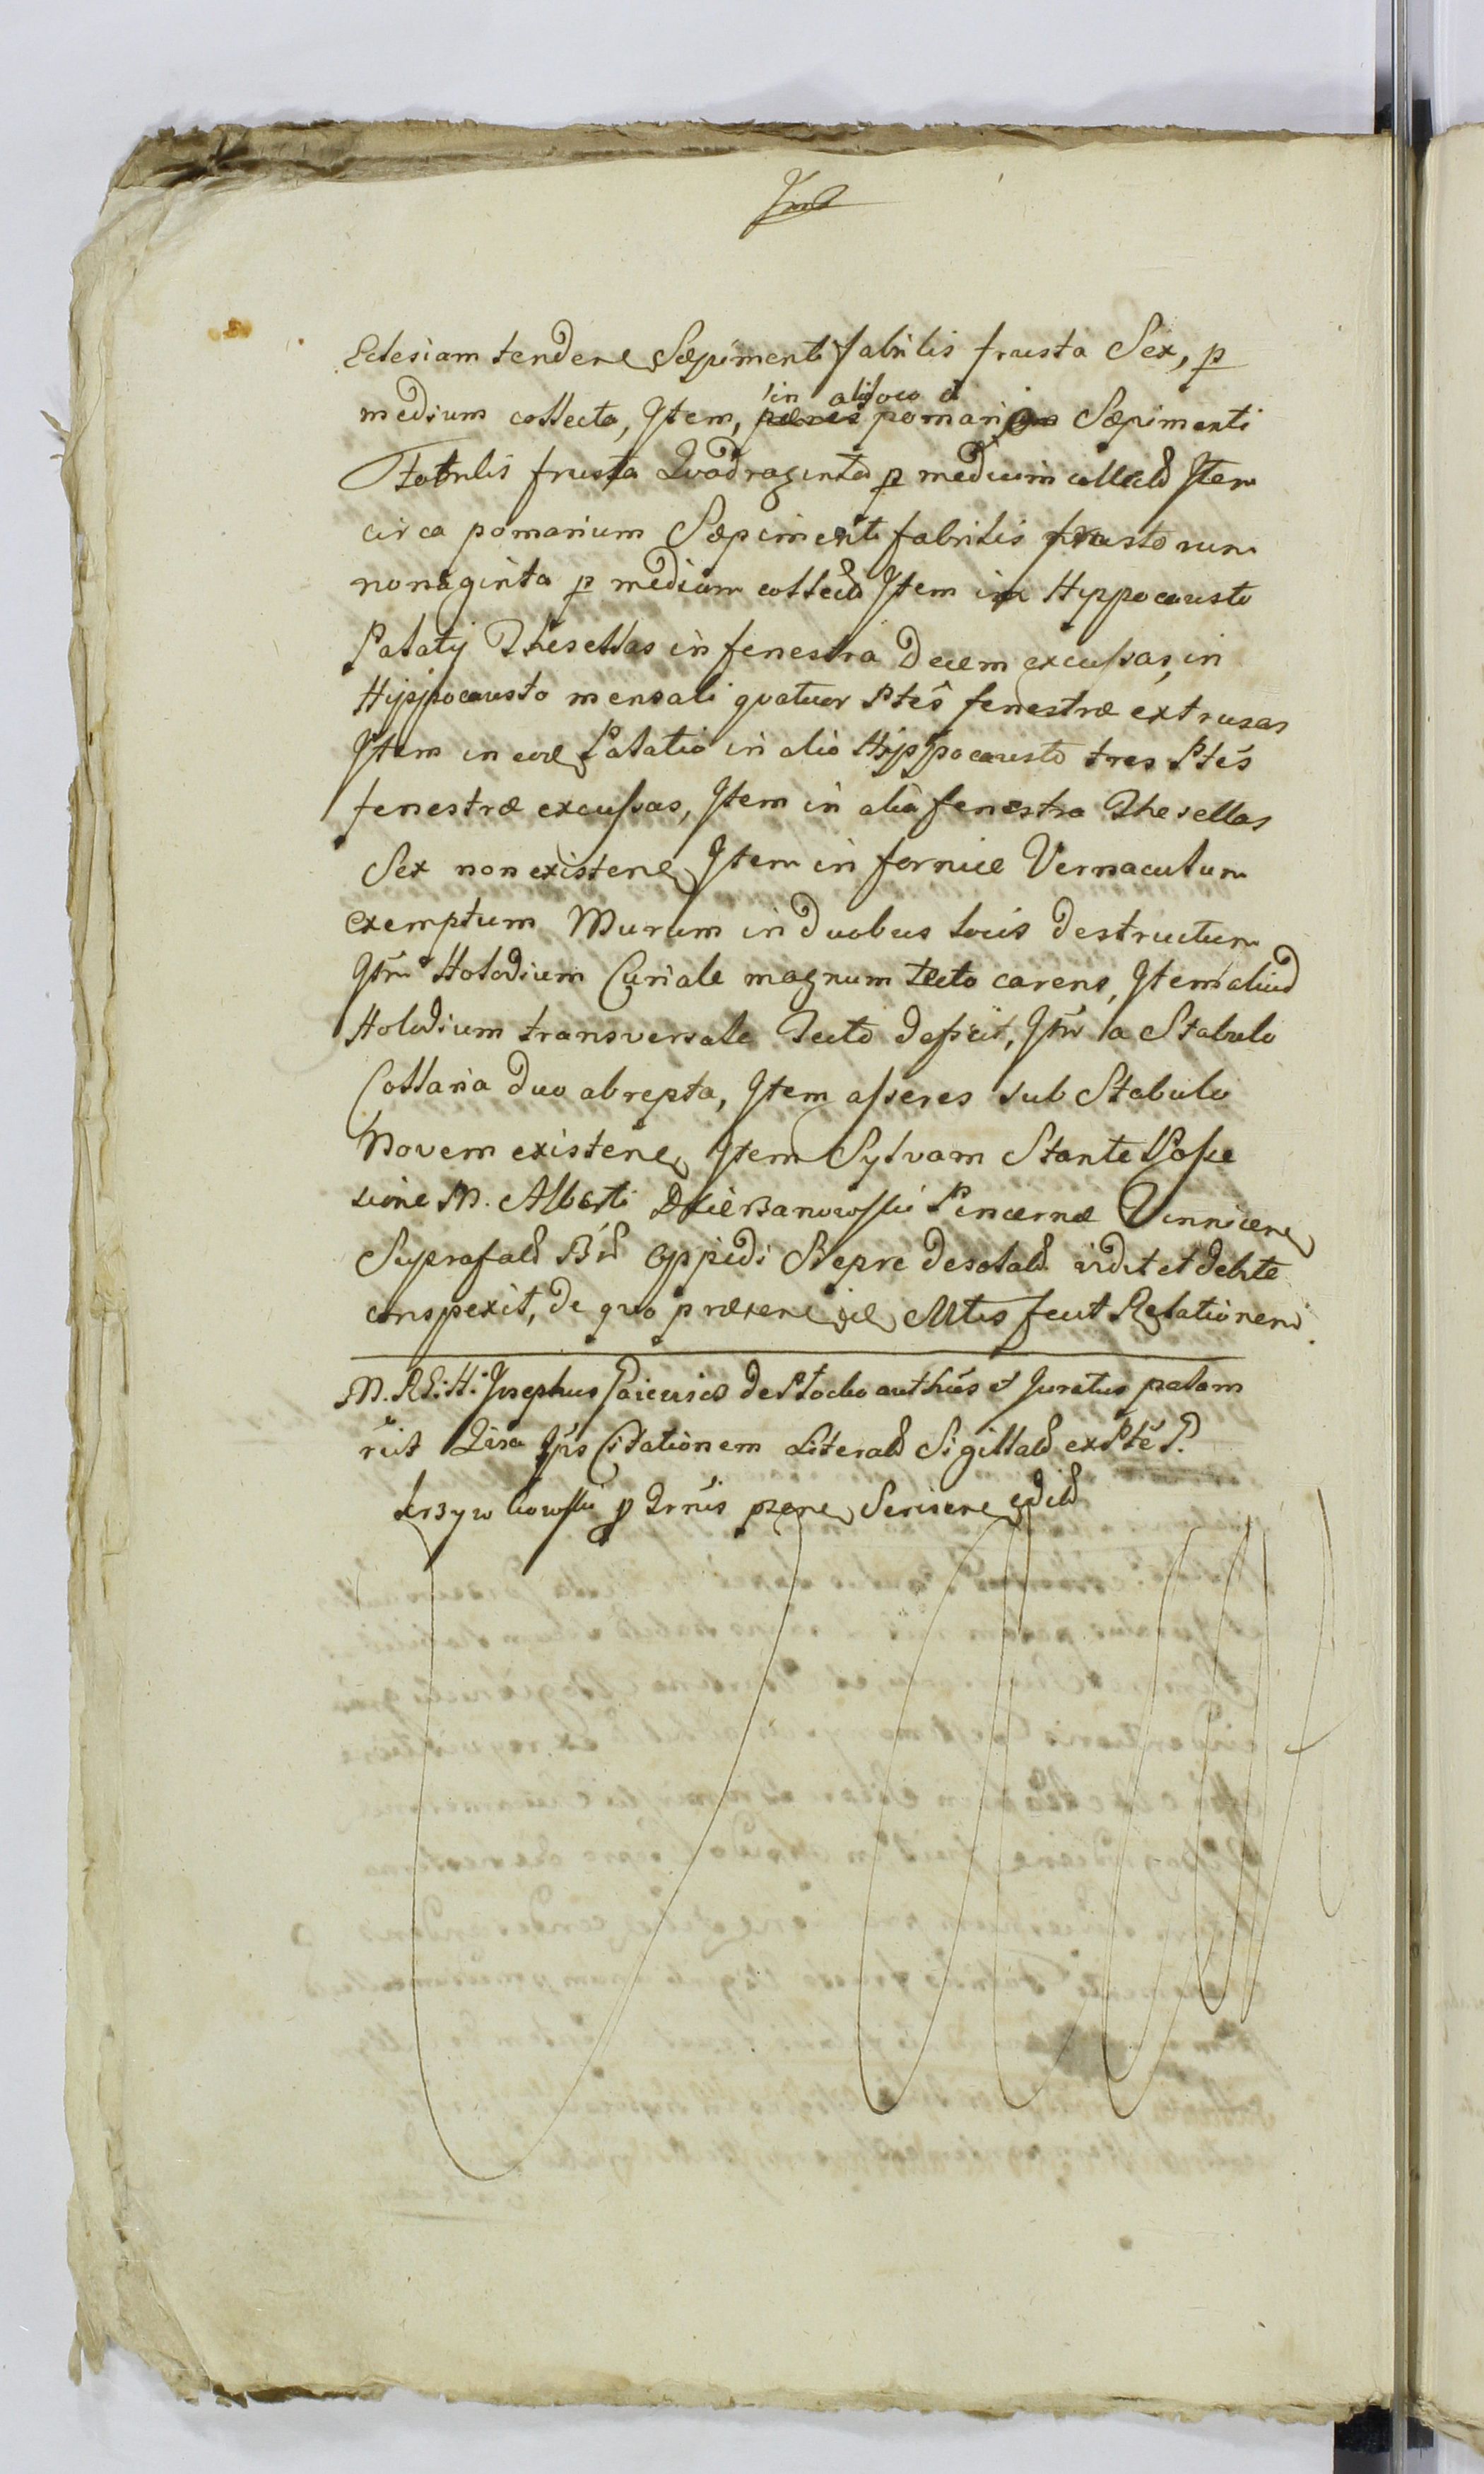 Eclesiam tendene Sæpimenti fabrilis frusta Sex, p
in alio loco a
medium collecta, Item, penes pomarium Sæpimenti
Fabrilis frusta Qvadraginta p medium collecta Item
circa pomarium Sæpimenti fabrilis frustorum
nonaginta p medium collecta Item in Hyppocausto
Palatij Thesellas in fenestra Decem excussas, in
Hyppocausto mensali qvatuor Ptes fenestræ extrusas
Item in eod Palatio in alio Hyppocausto tres Ptes
fenestræ excussas, Item in alia fenestra Thesellas
Sex non existene Item in fornice Vernaculum
exemptum Murum in Duobus locis Destructum
Itm Holodium Curiale magnum tecto carens, Item aliud
Holodium transversale Tecto deficit, Itm a Stabulo
Collaria duo abrepta, Item asseres sub Stabulo
Novem existene Item Sylvam Stante Posse
sione M. Alberti Dzierzanowski Pincernæ Vinnicene
Suprafald Bd Oppidi Biepre desolald vidit et debite
conspexit, de qvo præsene sæ Mtis fecit Relationem
M. R. S. H. Josephus de Ptocko authüs et Juratus palam
rëit Qvia Ipse Citationem Literald Sigillald ex Pte P.
Krzywkowski p Trnis pzene Serisene edild